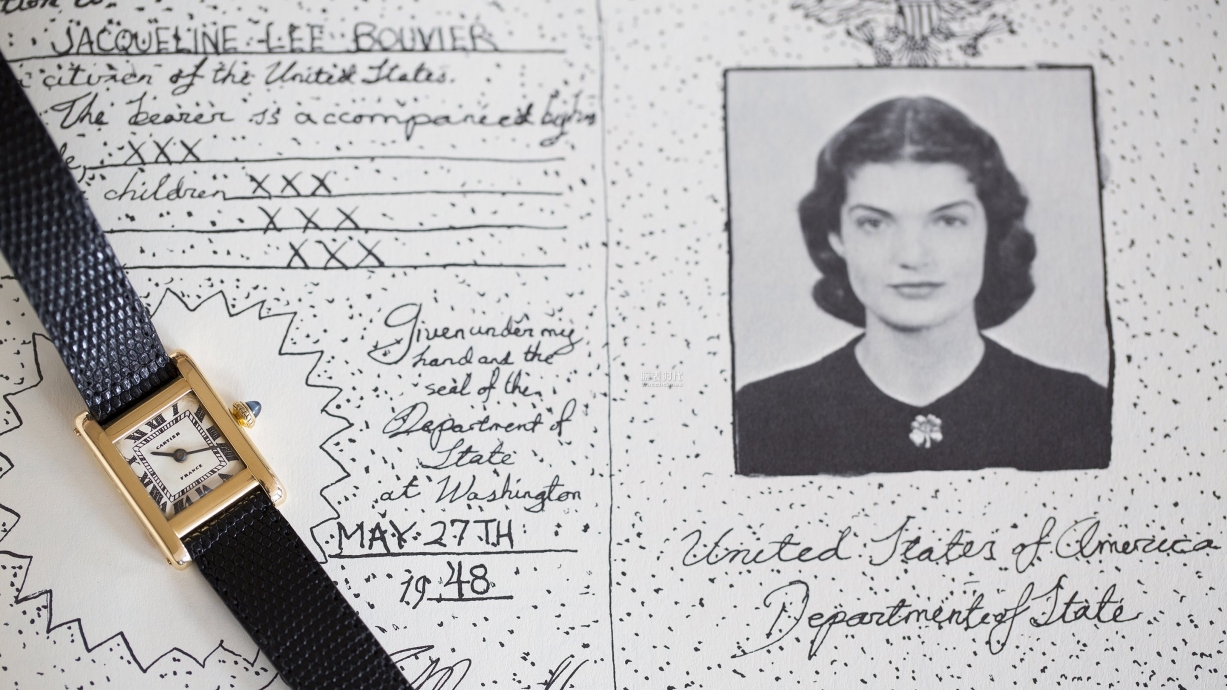 JACQUELINE LEE BOUVIER
citizen of the United States.
The bearer is accompanied by his
XXX
children XXX
XXX
XXX
Given under my
hand and the
seal of the
Department of
State
at Washington
MAY 27TH
19 48
United States of America
Department of State
CARTIER
FRANCE